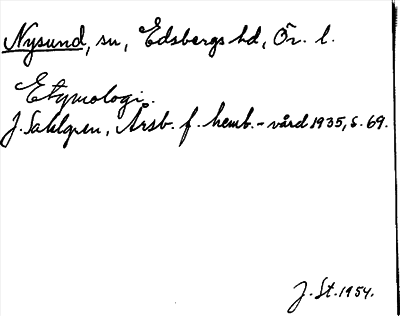 Nysund, sn, Edsbergs hd, Ör. l.
Etymologi.
J. Sahlgren, Årsb. f. hemb.-vård 1935, s. 69.
J. St. 1954.